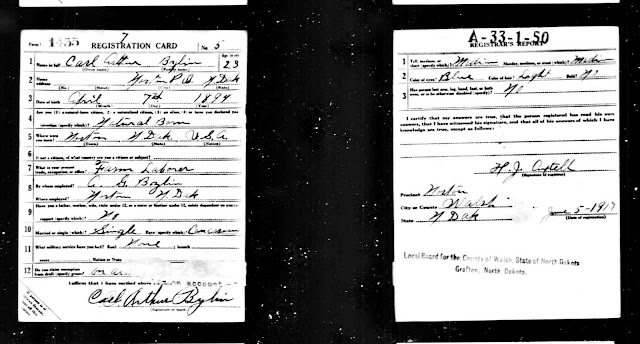 Form 1 1455 7 REGISTRATION CARD No. 5
1 Name in full Carl Arthur Bylin Age, in yrs. 23
(Given name) (Family name)
2 Home address Norton P.O. N Dak
(No.) (Street) (City) (State)
3 Date of birth April 7th 1894
(Month) (Day) (Year)
4 Are you (1) a natural-born citizen, (2) a naturalized citizen, (3) an alien, (4) or have you declared your
intention (specify which)? Natural Born
5 Where were you born? Norton N Dak U.S.A
(Town) (State) (Nation)
6 If not a citizen, of what country are you a citizen or subject?
7 What is your present trade, occupation, or office? Farm Laborer
8 By whom employed? A. G.
Where employed? Norton N Dak
9 Have you a father, mother, wife, child under 12, or a sister or brother under 12, solely dependent on you for
support (specify which)? No
10 Married or single (which)? Single Race (specify which)? Caucasian
11 What military service have you had? Rank None branch
years Nation or State
12 Do you claim exemption from draft (specify grounds)?
I affirm that I have verified above
Carl Arthur Bylin
(Signature or mark)
A-33-1-50
REGISTRAR'S REPORT
1 Tall, medium, or short (specify which)? Medium Slender, medium, or stout (which)? Medium
2 Color of eyes? Blue Color of hair? Light Bald? No
3 Has person lost arm, leg, hand, foot, or both
eyes, or is he otherwise disabled (specify)? No
I certify that my answers are true, that the person registered has read his own
answers, that I have witnessed his signature, and that all of his answers of which I have
knowledge are true, except as follows:
H. J. Axtell
(Signature of registrar)
Precinct Norton
City or County Walsh
State N Dak June 5-1917
(Date of registration)
Local Board for the County of Walsh, State of North Dakota
Grafton, North Dakota.